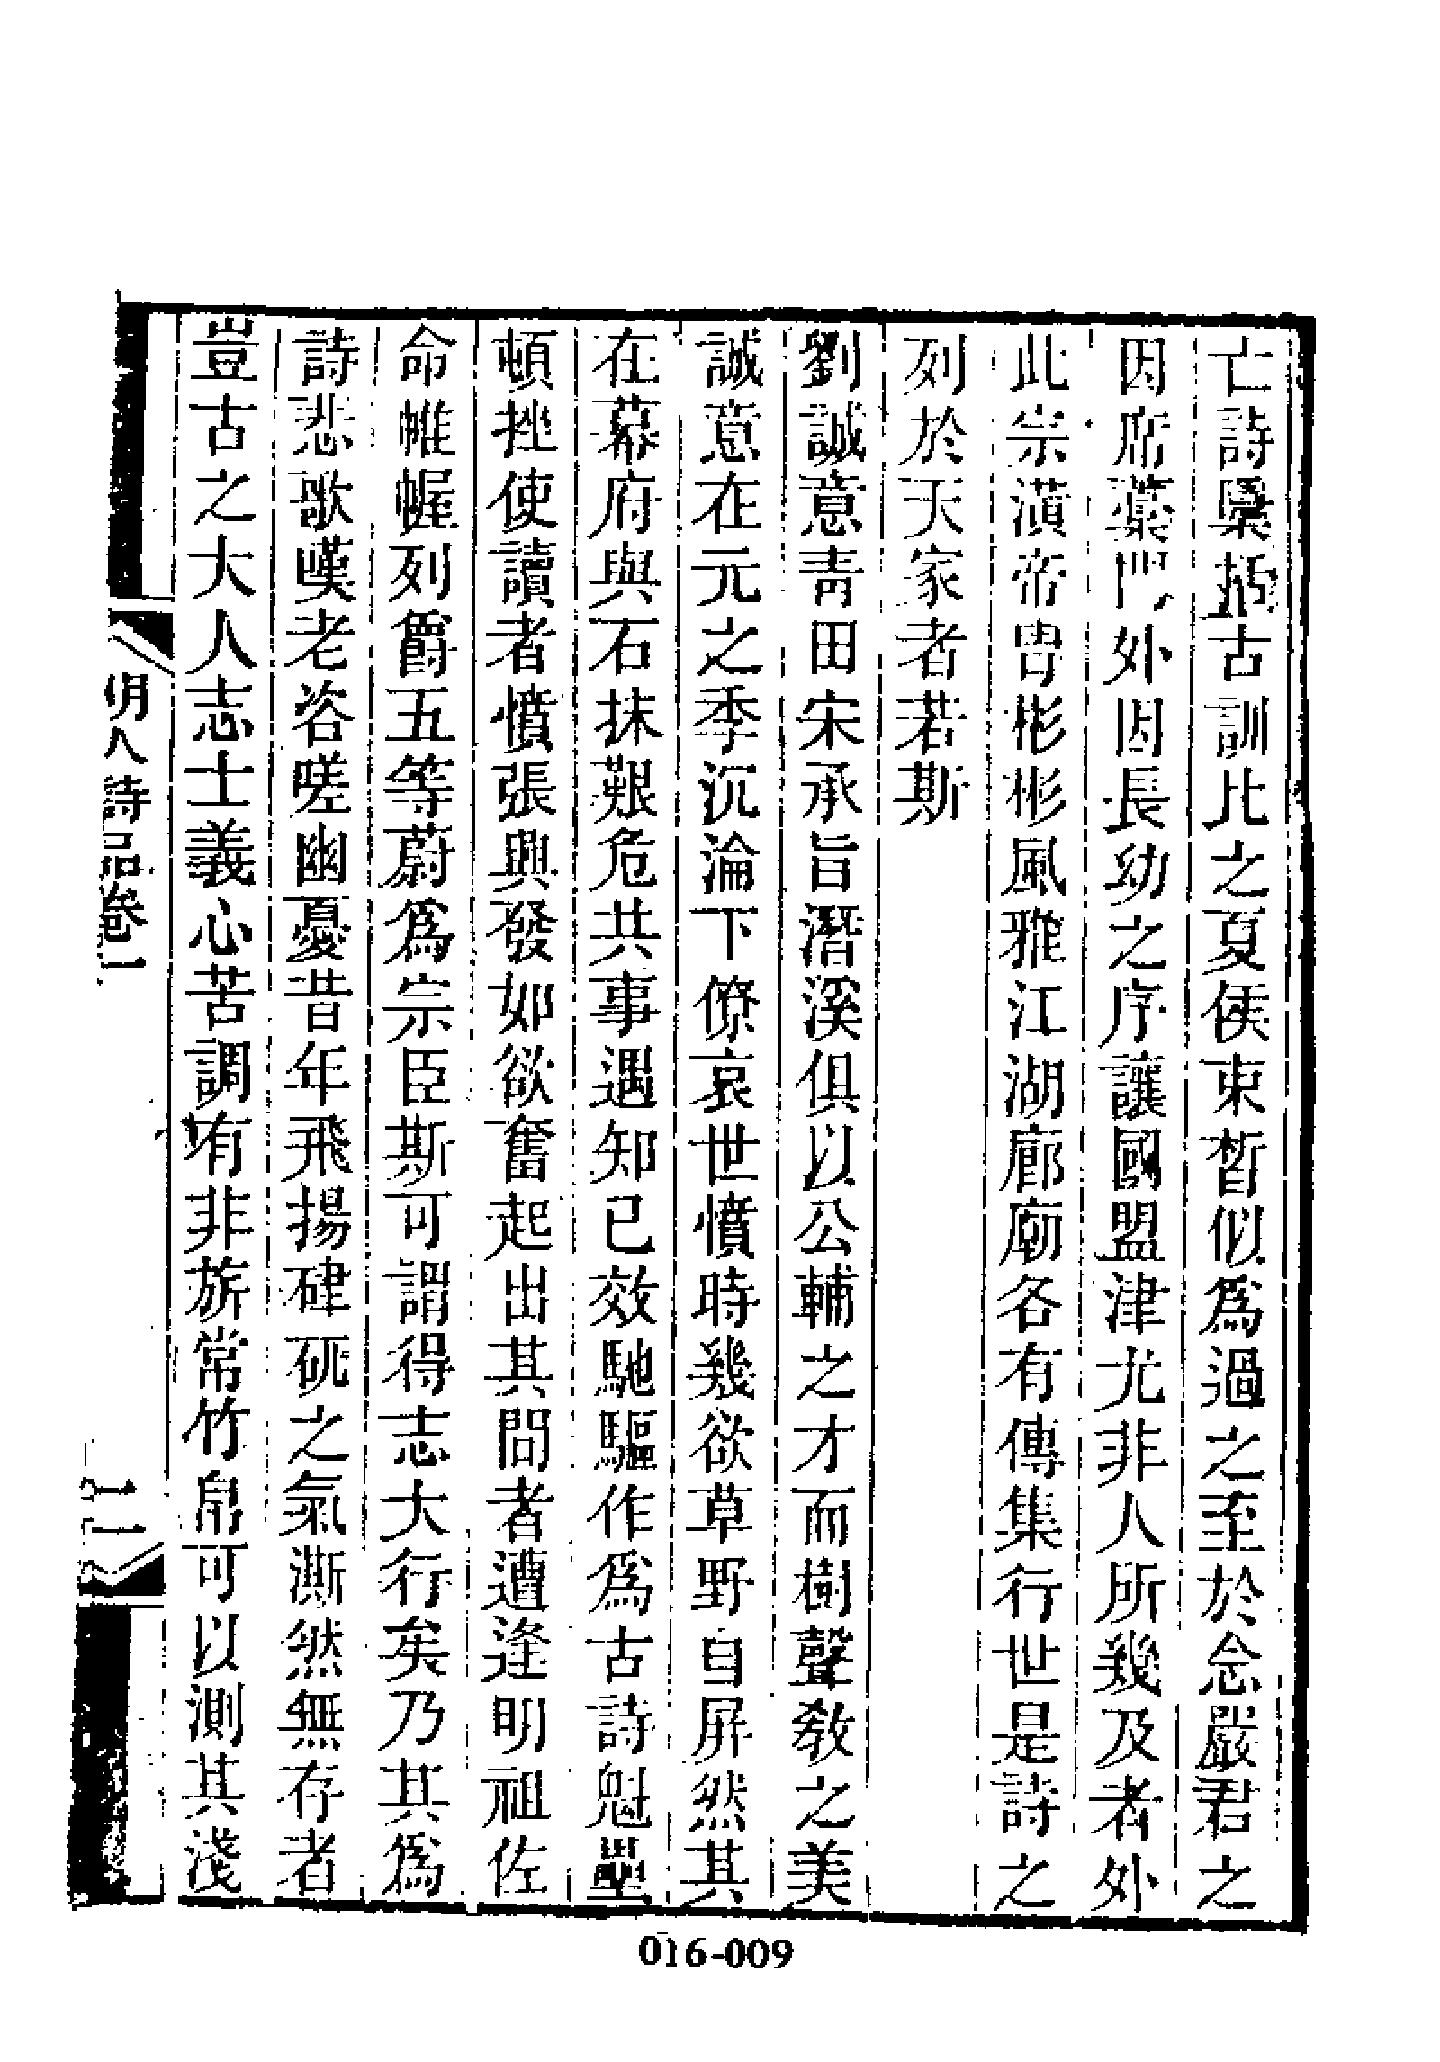 亡詩櫽括古訓比之夏侯束皙似爲過之至於念嚴君之
因席藁門外因長幼之序讓國盟津尤非人所幾及者外
此宗潢帝胄彬彬風雅江湖廊廟各有傳集行世是詩之
列於天家者若斯
劉誠意青田宋承旨潛溪俱以公輔之才而樹聲教之美
誠意在元之季沉淪下僚哀世憤時幾欲草野自屏然其
在幕府與石抹艱危共事遇知已效馳驅作爲古詩魁壘
頓挫使讀者憤張興發如欲奮起出其間者遭逢明祖佐
命帷幄列爵五等蔚爲宗臣斯可謂得志大行矣乃其爲
詩悲歌嘆老咨嗟幽憂昔年飛揚硉矹之氣澌然無存者
豈古之大人志士義心苦調有非旂常竹帛可以測其淺
明人詩品卷一
二
016-009